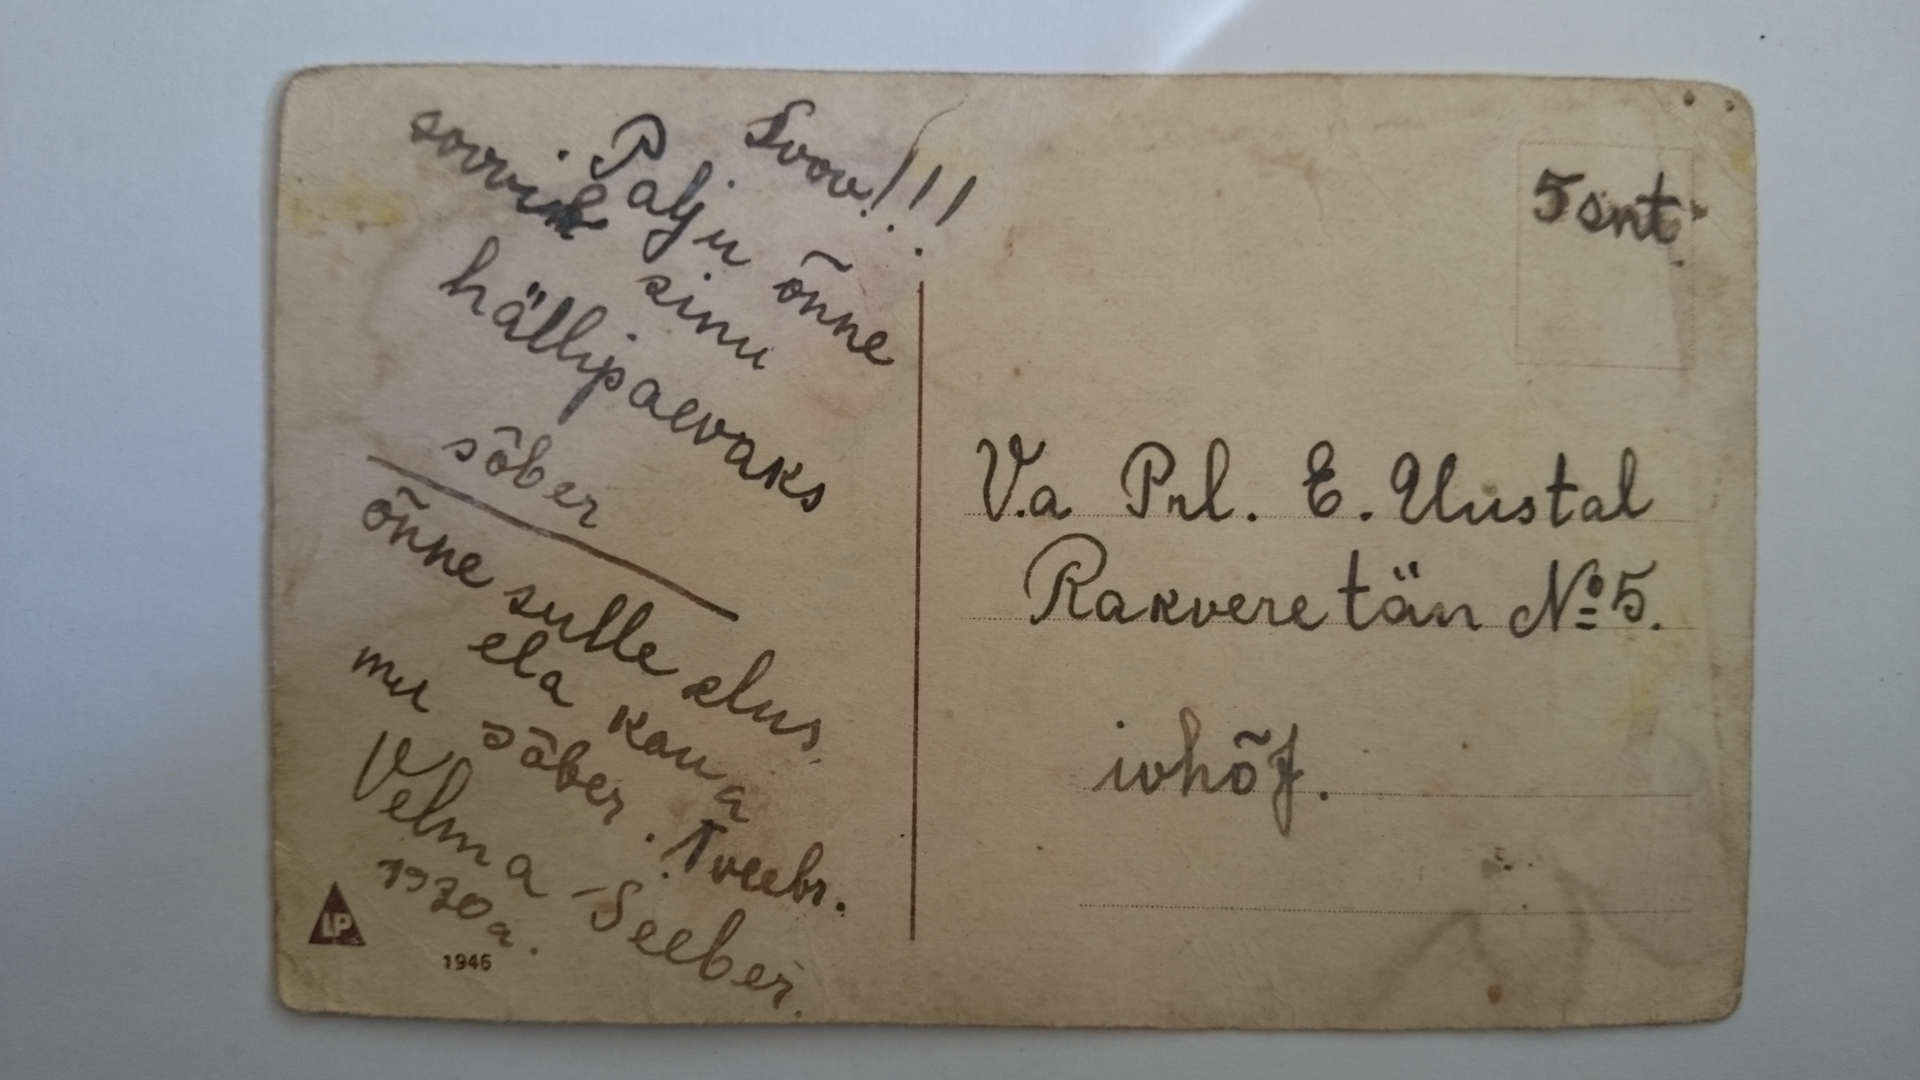 Soov!!!
Palju õnne
sovvin sinu
hällipaevaks
sõber
õnne sulle elus,
ela kaua
mu sõber. 1 veebr.
Velma Seeber.
1930 a.
LP
1946
5 snt.
V.a Prl. E. Uustal
Rakvere tän № 5.